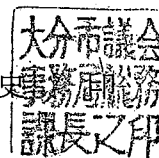 大分市議会
史事務局総務
課長之印